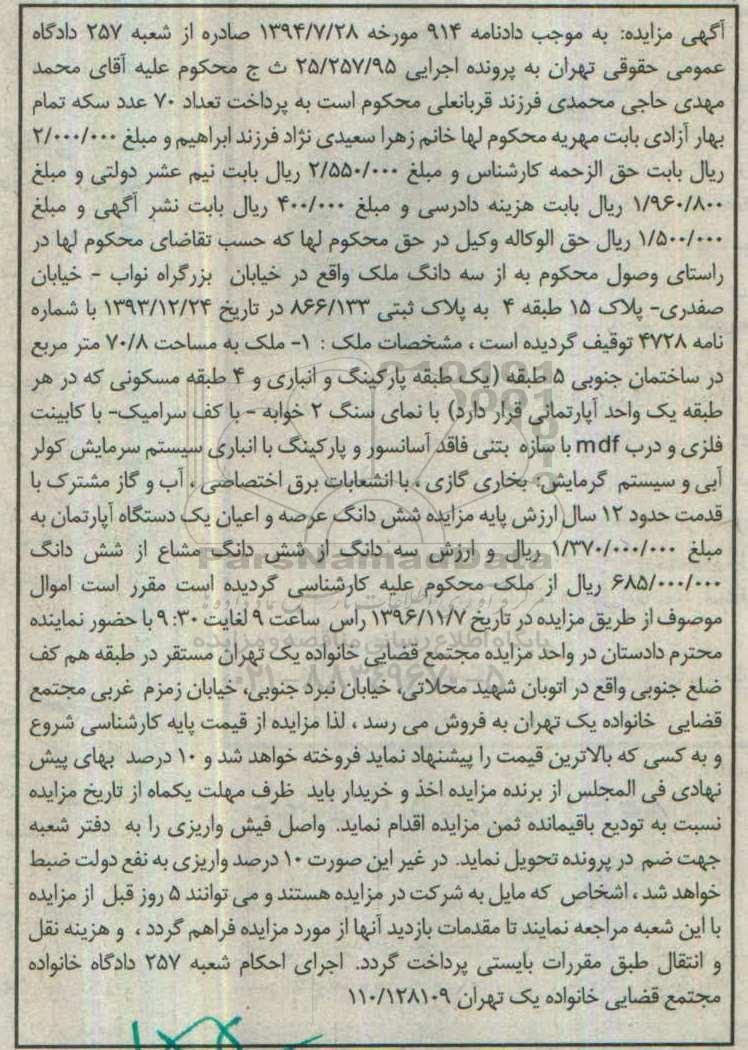 آگهی مزایده: به موجب دادنامه ۹۱۴ مورخه ۱۳۹۴/۷/۲۸ صادره از شعبه ۲۵۷ دادگاه
عمومی حقوقی تهران به پرونده اجرایی ۲۵/۲۵۷/۹۵ ث ج محکوم علیه آقای محمد
مهدی حاجی محمدی فرزند قربانعلی محکوم است به پرداخت تعداد ۷۰ عدد سکه تمام
بهار آزادی بابت مهریه محکوم لها خانم زهرا سعیدی نژاد فرزند ابراهیم و مبلغ ۲/۰۰۰/۰۰۰
ریال بابت حق الزحمه کارشناس و مبلغ ۲/۵۵۰/۰۰۰ ریال بابت نیم عشر دولتی و مبلغ
۱/۹۶۰/۸۰۰ ریال بابت هزینه دادرسی و مبلغ ۴۰۰/۰۰۰ ریال بابت نشر آگهی و مبلغ
۱/۵۰۰/۰۰۰ ریال حق الوکاله وکیل در حق محکوم لها که حسب تقاضای محکوم لها در
راستای وصول محکوم به از سه دانگ ملک واقع در خیابان بزرگراه نواب - خیابان
صفدری- پلاک ۱۵ طبقه ۴ به پلاک ثبتی ۸۶۶/۱۳۳ در تاریخ ۱۳۹۳/۱۲/۲۴ با شماره
نامه ۴۷۲۸ توقیف گردیده است ، مشخصات ملک : ۱- ملک به مساحت ۷۰/۸ متر مربع
در ساختمان جنوبی ۵ طبقه (یک طبقه پارکینگ و انباری و ۴ طبقه مسکونی که در هر
طبقه یک واحد آپارتمانی قرار دارد) با نمای سنگ ۲ خوابه - با کف سرامیک- با کابینت
فلزی و درب mdf با سازه بتنی فاقد آسانسور و پارکینگ با انباری سیستم سرمایش کولر
آبی و سیستم گرمایش: بخاری گازی ، با انشعابات برق اختصاصی ، آب و گاز مشترک با
قدمت حدود ۱۲ سال ارزش پایه مزایده شش دانگ عرصه و اعیان یک دستگاه آپارتمان به
مبلغ ۱/۳۷۰/۰۰۰/۰۰۰ ریال و ارزش سه دانگ از شش دانگ مشاع از شش دانگ
۶۸۵/۰۰۰/۰۰۰ ریال از ملک محکوم علیه کارشناسی گردیده است مقرر است اموال
موصوف از طریق مزایده در تاریخ ۱۳۹۶/۱۱/۷ راس ساعت ۹ لغایت ۹:۳۰ با حضور نماینده
محترم دادستان در واحد مزایده مجتمع قضایی خانواده یک تهران مستقر در طبقه هم کف
ضلع جنوبی واقع در اتوبان شهید محلاتی، خیابان نبرد جنوبی، خیابان زمزم غربی مجتمع
قضایی خانواده یک تهران به فروش می رسد ، لذا مزایده از قیمت پایه کارشناسی شروع
و به کسی که بالاترین قیمت را پیشنهاد نماید فروخته خواهد شد و ۱۰ درصد بهای پیش
نهادی فی المجلس از برنده مزایده اخذ و خریدار باید ظرف مهلت یکماه از تاریخ مزایده
نسبت به تودیع باقیمانده ثمن مزایده اقدام نماید. واصل فیش واریزی را به دفتر شعبه
جهت ضم در پرونده تحویل نماید. در غیر این صورت ۱۰ درصد واریزی به نفع دولت ضبط
خواهد شد ، اشخاص که مایل به شرکت در مزایده هستند و می توانند ۵ روز قبل از مزایده
با این شعبه مراجعه نمایند تا مقدمات بازدید آنها از مورد مزایده فراهم گردد ، و هزینه نقل
و انتقال طبق مقررات بایستی پرداخت گردد. اجرای احکام شعبه ۲۵۷ دادگاه خانواده
مجتمع قضایی خانواده یک تهران ۱۱۰/۱۲۸۱۰۹
ParsNamadData